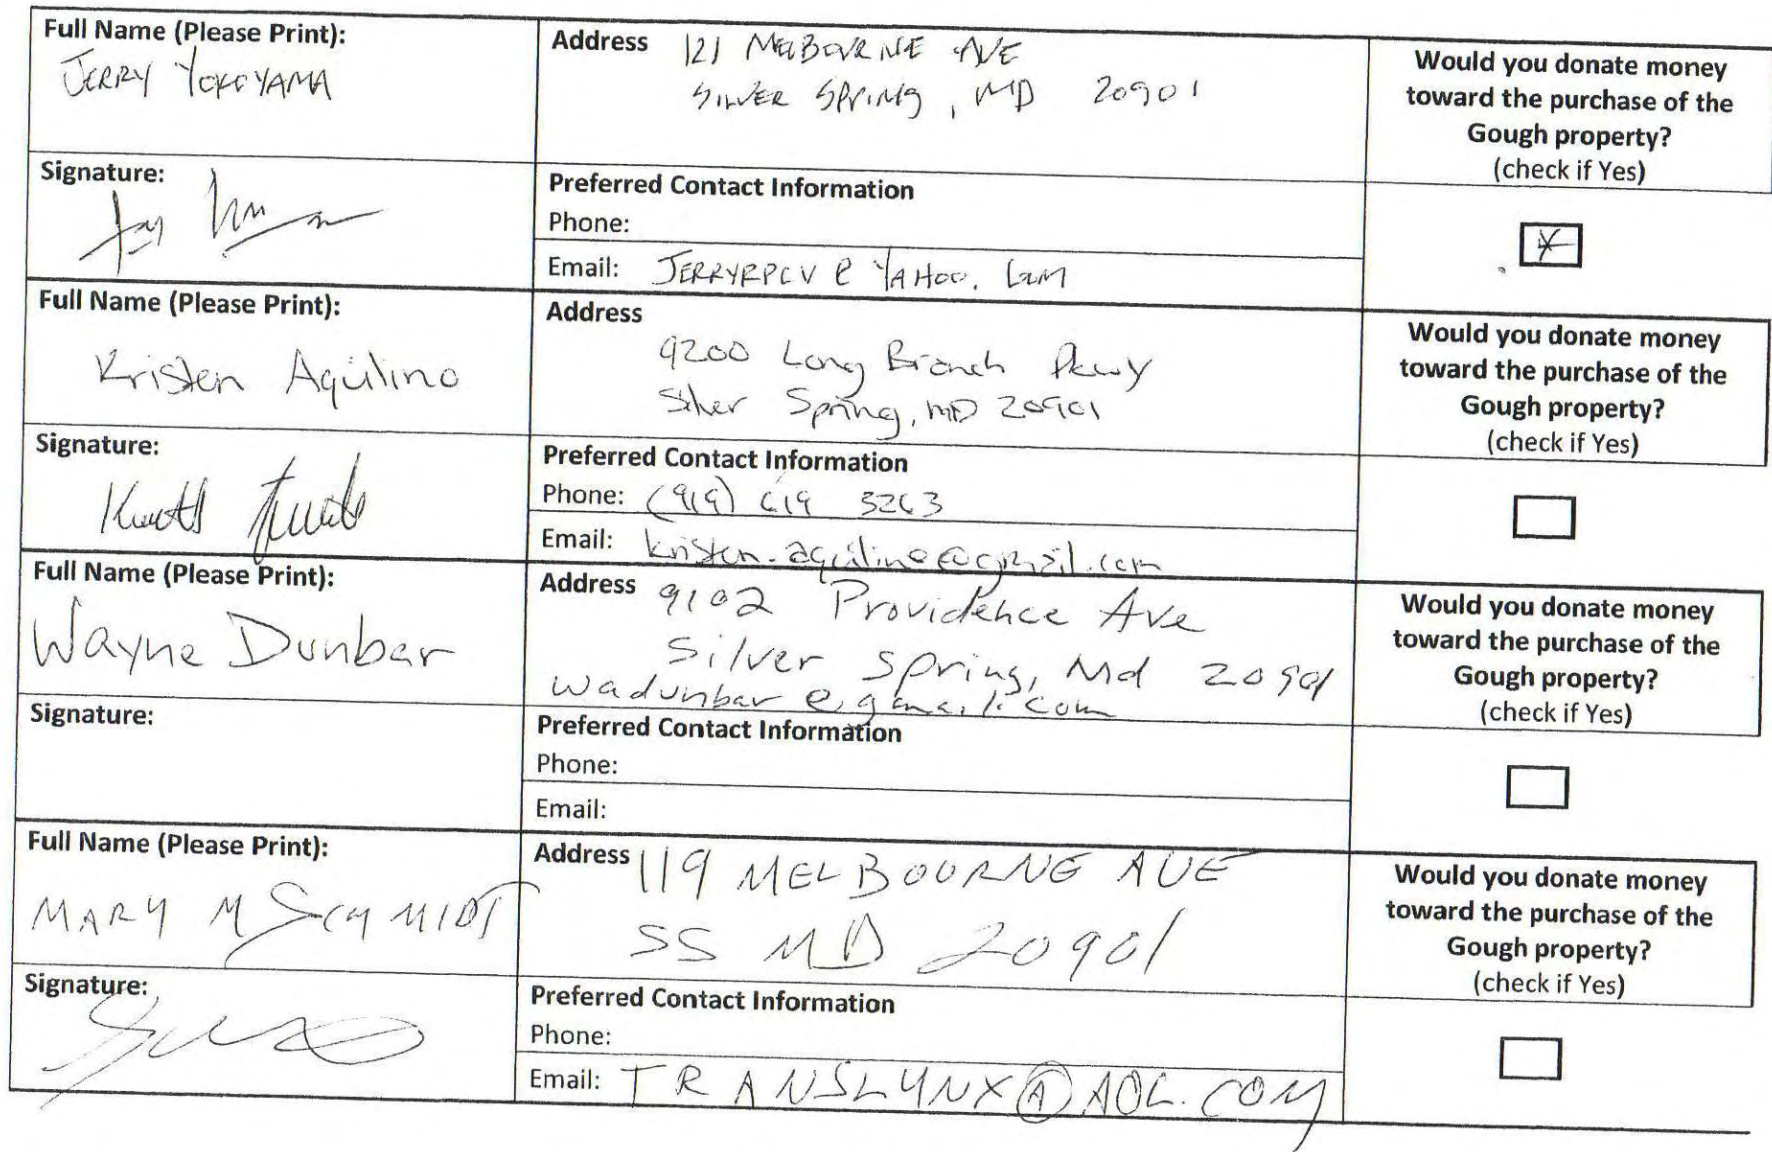 Full Name (Please Print):
JERRY YOKOYAMA
Address 121 MELBOURNE AVE
SILVER SPRING, MD 20901
Would you donate money
toward the purchase of the
Gough property?
(check if Yes)
Signature:
Preferred Contact Information
Phone:
Email: JERRYRPCV@YAHOO.COM
Full Name (Please Print):
Kristen Aquilino
Address
9200 Long Branch Pkwy
Silver Spring, MD 20901
Would you donate money
toward the purchase of the
Gough property?
(check if Yes)
Signature:
Preferred Contact Information
Phone: (919) 619 3263
Email: kristen.aquilino@gmail.com
Full Name (Please Print):
Wayne Dunbar
Address 9102 Providence Ave
Silver Spring, Md 20901
wadunbar@gmail.com
Would you donate money
toward the purchase of the
Gough property?
(check if Yes)
Signature:
Preferred Contact Information
Phone:
Email:
Full Name (Please Print):
MARY M SCHMIDT
Address 119 MELBOURNE AVE
SS MD 20901
Would you donate money
toward the purchase of the
Gough property?
(check if Yes)
Signature:
Preferred Contact Information
Phone:
Email: TRANSLYNX@AOL.COM